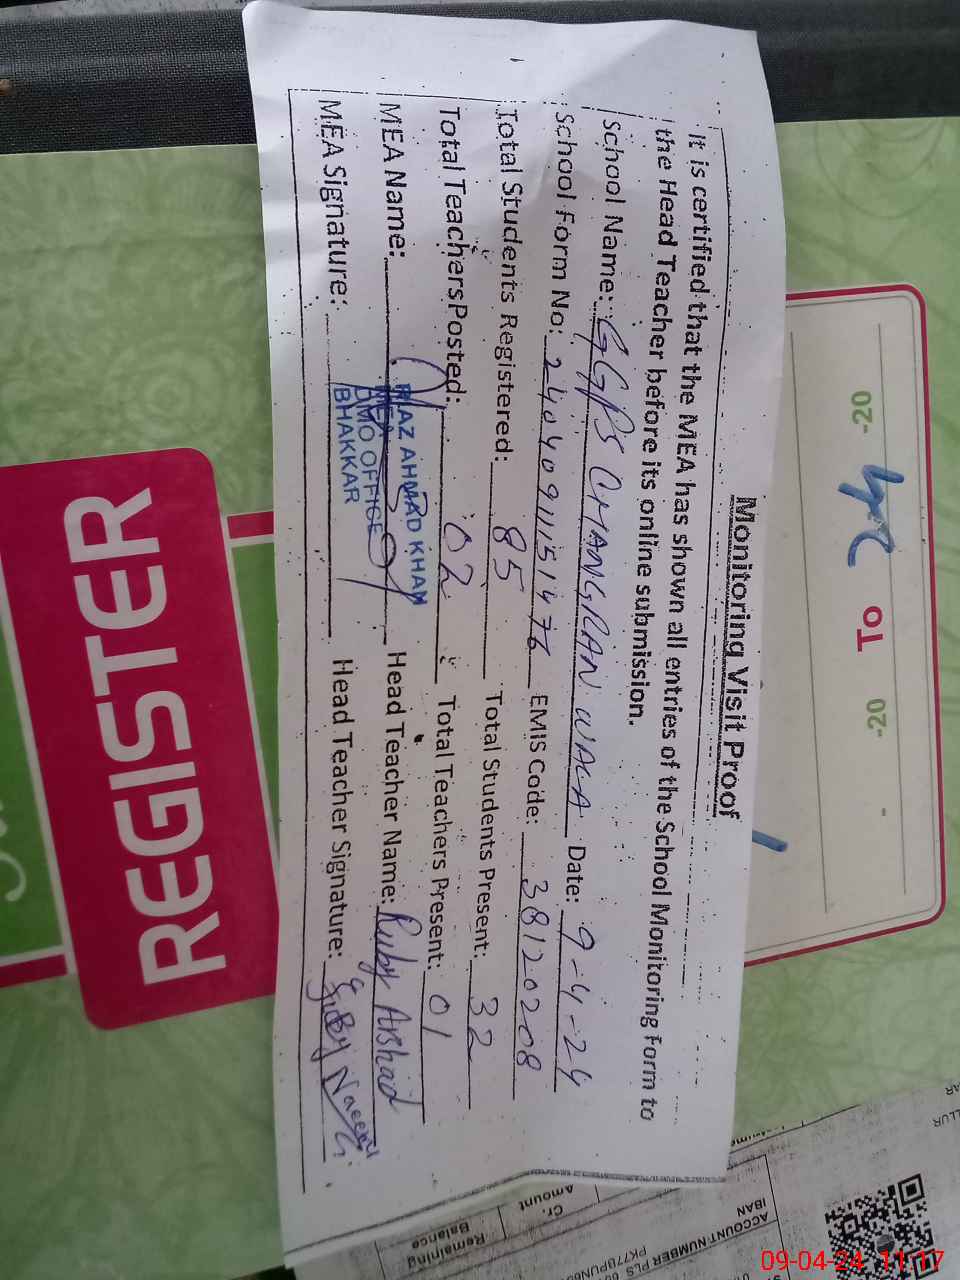 Monitoring Visit Proof
It is certified that the MEA has shown all entries of the School Monitoring Form to
the Head Teacher before its online submission.
School Name: GGPS CHANGRAN WALA Date: 9-4-24
School Form No: 24040911151476 EMIS Code: 38120208
Total Students Registered: 85 Total Students Present: 32
Total Teachers Posted: 02 Total Teachers Present: 01
MEA Name: Head Teacher Name: Ruby Arshad
MEA Signature: Head Teacher Signature:
RIAZ AHMAD KHAN
MEA
DMO OFFICE
BHAKKAR
REGISTER
-20 To -20
Remaining
Balance
Cr.
Amount
ACCOUNT NUMBER PLS
IBAN
09-04-24 11:17